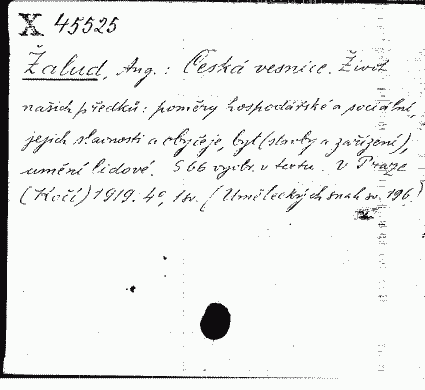 X 45525
Žalud, Aug.: Česká vesnice. Život
našich předků: poměry hospodářské a sociální,
jejich slavnosti a obyčeje, byt (stavby a zařízení)
umění lidové. 566 vyobr. v textu. V Praze
(Kočí) 1919. 4°, 1 sv. (Uměleckých snah sv. 196)